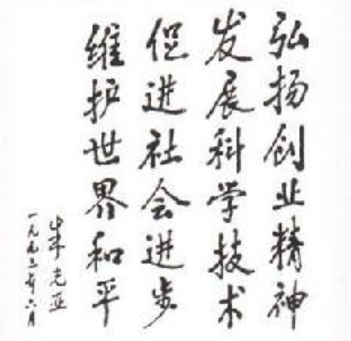 弘扬创业精神
发展科学技术
促进社会进步
维护世界和平
牟克亚
一九九三年六月